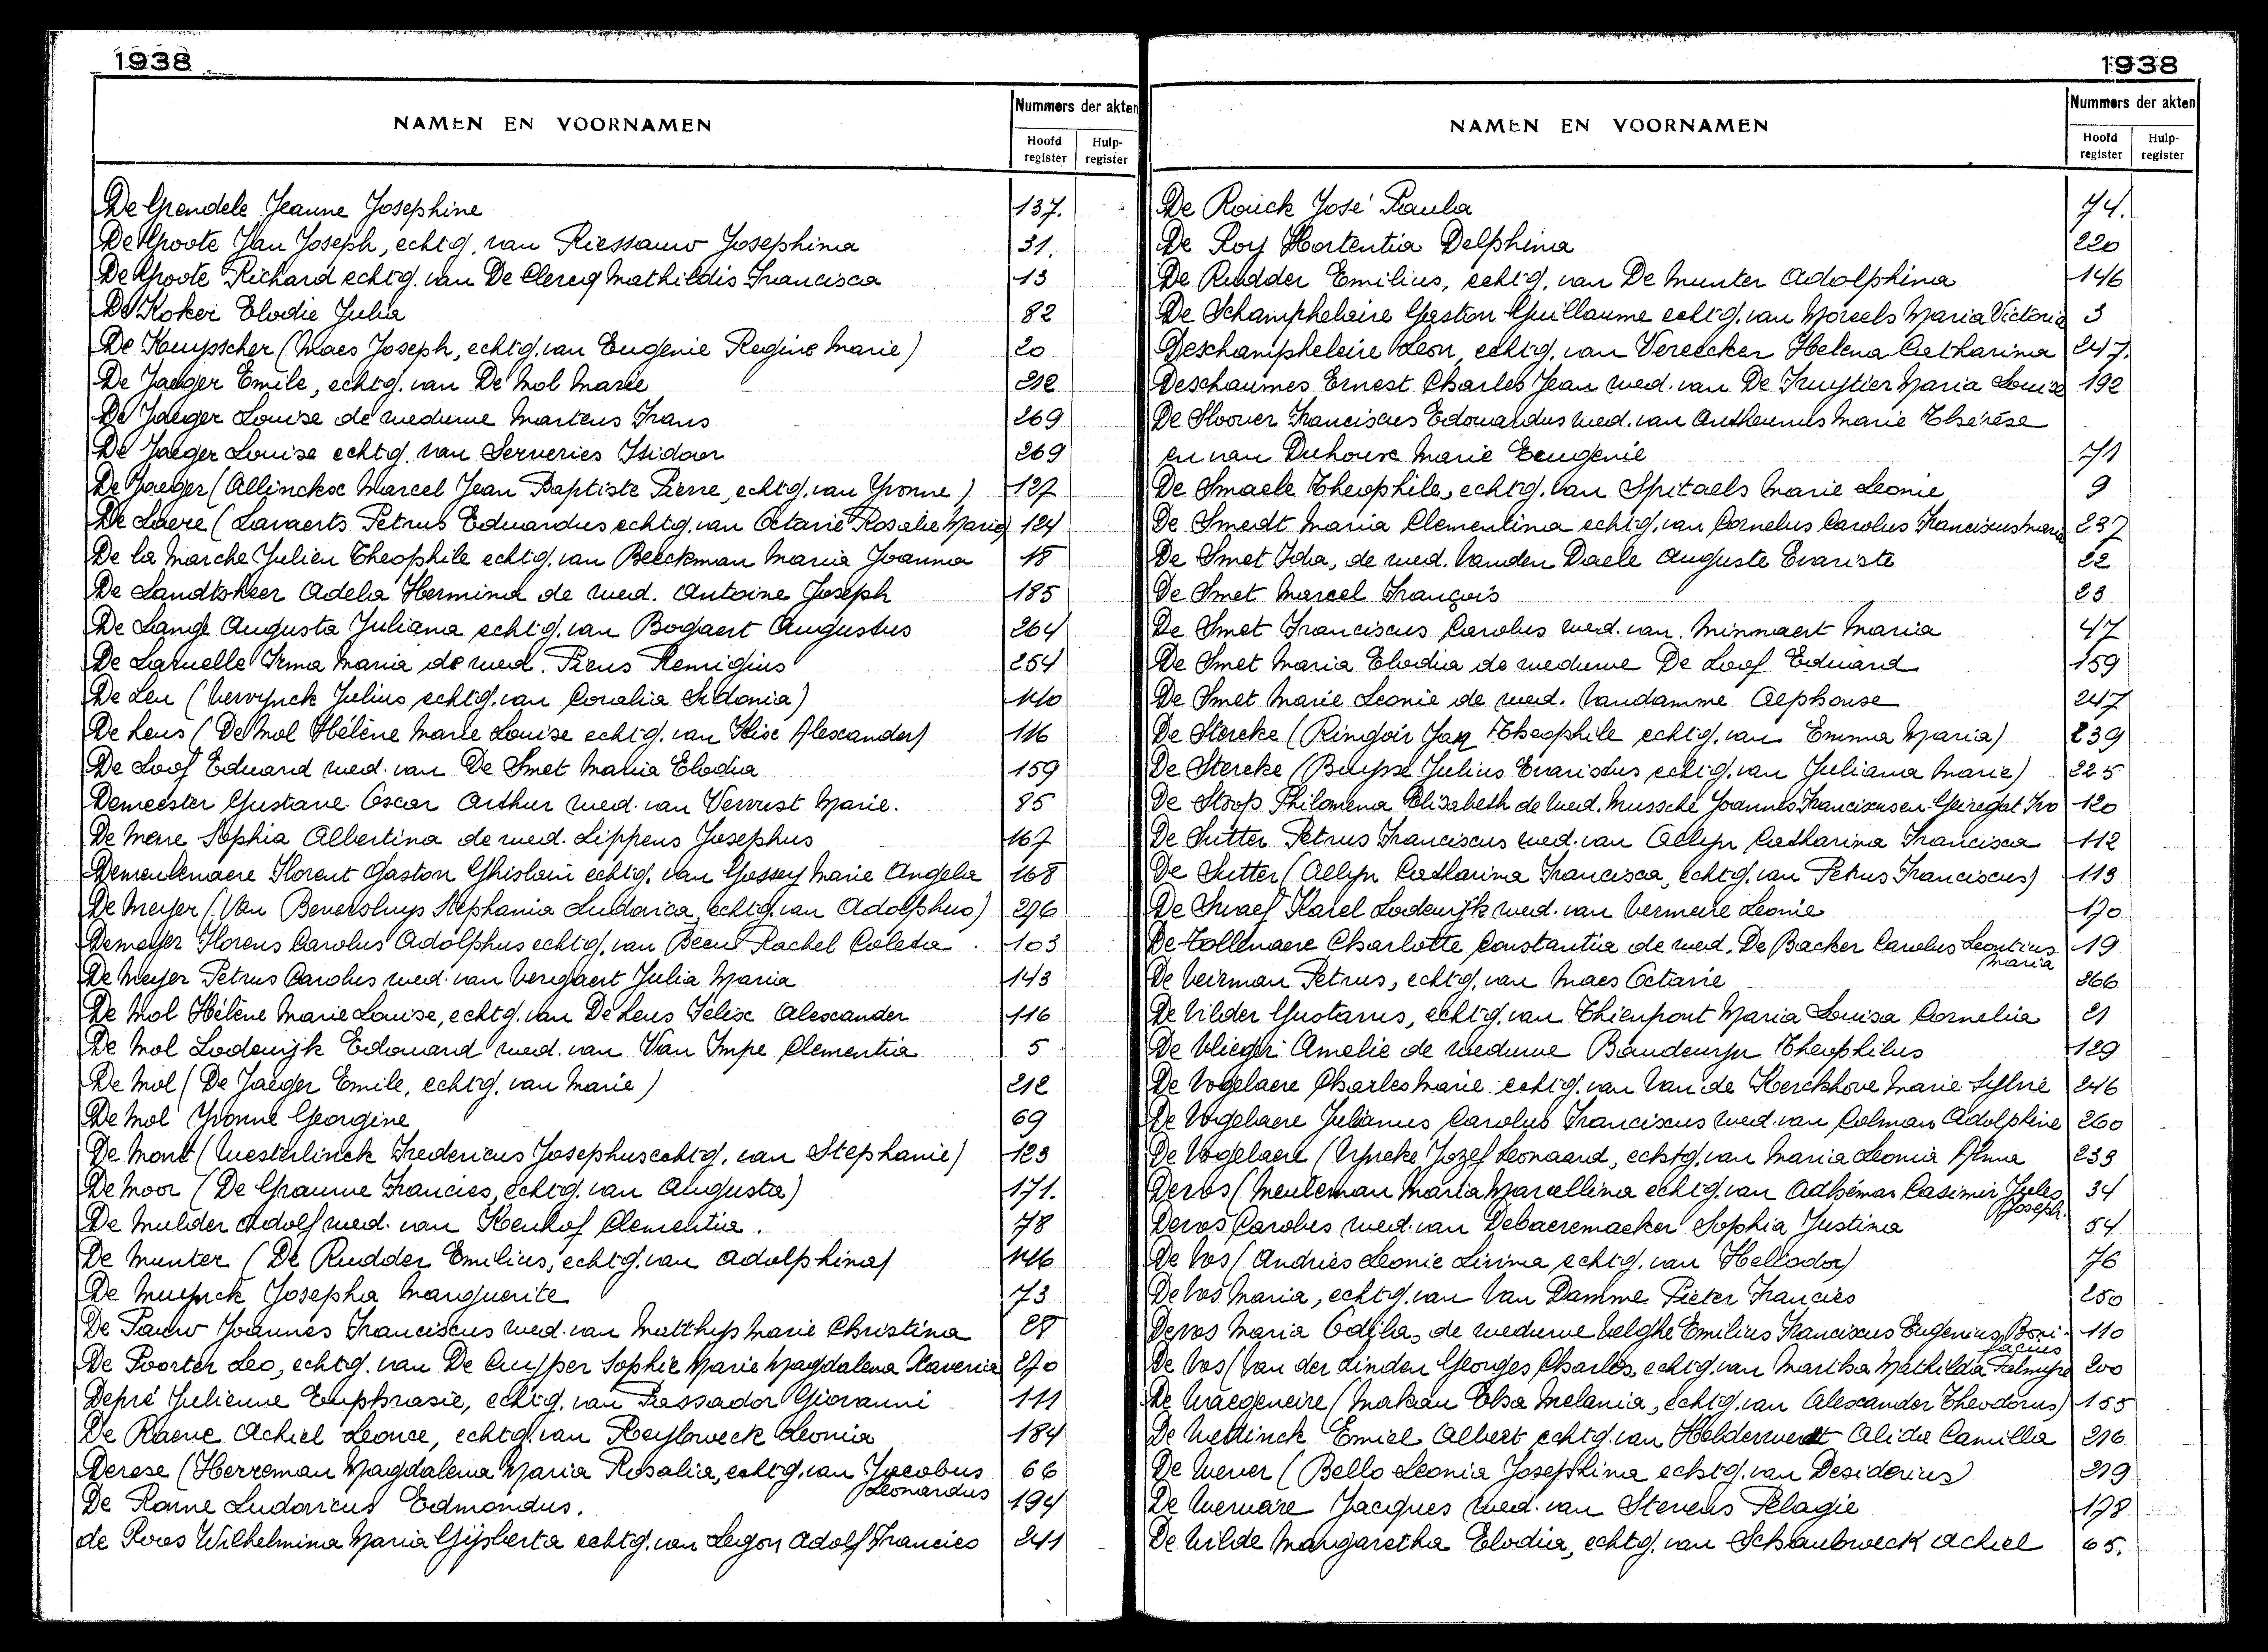 1938
NAMEN EN VOORNAMEN
Nummers der akten
Hoofd register
Hulp- register
De Grendele Jeanne Josephine 137.
De Groote Jan Joseph, echtg. van Riessauw Josephina 31.
De Groote Richard echtg. van De Clercq Mathildis Francisca 13
De Koker Elodie Julia 82
De Kuysscher (Maes Joseph, echtg. van Eugenie Regine Marie) 20
De Jaeger Emile, echtg. van De Mol Marie 212
De Jaeger Louise de weduwe Martens Frans 269
De Jaeger Louise echtg. van Serveries Isidoor 269
De Jaeger (Allinckx Marcel Jean Baptiste Pierre, echtg. van Yvonne) 127
De Laere (Lavaerts Petrus Eduardus echtg. van Octavie Rosalie Marie) 124
De la Marche Julien Theophile echtg. van Beeckman Maria Joanna 18
De Landtsheer Adela Hermina de wed. Antoine Joseph 185
De Lange Augusta Juliana echtg. van Bogaert Augustus 264
De Laruelle Irma Maria de wed. Piens Remigius 254
De Leu (Vervynck Julius echtg. van Coralia Sidonia) 140
De Leus (De Mol Hélène Marie Louise echtg. van Félix Alexander) 116
De Loof Eduard wed. van De Smet Maria Elodia 159
Demeester Gustave Oscar Arthur wed. van Vervust Marie. 85
De Mere Sophia Albertina de wed. Lippens Josephus 167
Demeulenaere Florent Gaston Ghislain echtg. van Gossey Marie Angela 168
De Meyer (Van Beversluys Stephania Ludovica, echtg. van Adolphus) 296
Demeyer Florens Carolus Adolphus echtg. van Been Rachel Coleta 103
De Meyer Petrus Carolus wed. van Vergaert Julia Maria 143
De Mol Hélène Marie Louise, echtg. van De Leus Félix Alexander 116
De Mol Lodewijk Edouard wed. van Van Impe Clementia 5
De Mol (De Jaeger Emile, echtg. van Marie) 212
De Mol Yvonne Georgine 69
De Mont (Westerlinck Fredericus Josephus echtg. van Stephanie) 123
De Moor (De Graeuwe Francies, echtg. van Augusta) 171.
De Mulder Adolf wed. van Koenhof Clementia. 78
De Munter (De Rudder Emilius, echtg. van Adolphina) 146
De Muynck Josepha Marguerite 73
De Pauw Joannes Franciscus wed. van Matthys Marie Christina 28
De Poorter Leo, echtg. van De Cuyper Sophie Marie Magdalena Xaveria 270
Depré Julienne Euphrasie, echtg. van Passador Giovanni 111
De Raeve Achiel Leonce, echtg. van Reyloveck Leonia 184
Derese (Herreman Magdalena Maria Rosalia, echtg. van Jacobus Leonardus 66
De Ronne Ludovicus Edmondus. 194
de Roos Wilhelmina Maria Gijsberta echtg. van Legon Adolf Francies 241
1938
NAMEN EN VOORNAMEN
Nummers der akten
Hoofd register
Hulp- register
De Rouck José Paula 74.
De Roy Hortentia Delphina 220
De Rudder Emilius, echtg. van De Munter Adolphina 146
De Schampheleire Gaston Guillaume echtg. van Moreels Maria Victoria 3
Deschampheleire Leon, echtg. van Vereecker Helena Catharina 247.
Deschaumes Ernest Charles Jean wed. van De Fruytier Maria Louise 192
De Sloover Franciscus Edouardus wed. van Antheunus Marie Thérèse
en van Duhoux Marie Eeugenie 71
De Smaele Theophile, echtg. van Spitaels Marie Leonie 9
De Smedt Maria Clementina echtg. van Cornelus Carolus Franciscus Maria 237
De Smet Ida, de wed. Vanden Daele Auguste Evariste 22
De Smet Marcel François 23
De Smet Franciscus Carolus wed. van Minnaert Maria 47
De Smet Maria Elodia de weduwe De Loof Eduard 159
De Smet Marie Leonie de wed. Vandamme Alphonse 247
De Stercke (Ringoir Jan Theophile echtg. van Emma Maria) 239
De Stercke (Buysse Julius Evaristus echtg. van Juliana Marie) 225
De Stoop Philomena Elisabeth de wed. Mussche Joannes Franciscus en Geiregat Ivo 120
De Sutter Petrus Franciscus wed. van Alleyn Catharina Francisca 112
De Sutter (Alleyn Catharina Francisca, echtg. van Petrus Franciscus) 113
De Swaef Karel Lodewijk wed. van Vermeire Leonie 170
De Tollenaere Charlotte Constantia de wed. De Backer Carolus Leontius Maria 19
De Veirman Petrus, echtg. van Maes Octavie 266
De Vilder Gustavus, echtg. van Thienpont Maria Louisa Cornelia 21
De Vlieger Amelie de weduwe Baudewyn Theophilus 129
De Vogelaere Charles Marie echtg. van Van de Kerckhove Marie Sylvie 246
De Vogelaere Julianus Carolus Franciscus wed. van Colman Adolphine 260
De Vogelaere (Uyncke Jozef Leonaard, echtg. van Maria Leonia Alma 233
Devos (Meuleman Maria Marcellina echtg. van Adhémar Casimir Jules Joseph. 34
Devos Carolus wed. van Debaeremaeker Sophia Justina 54
De Vos (Andries Leonie Livina echtg. van Heliodor) 76
De Vos Maria, echtg. van Van Damme Pieter Francies 250
Devos Maria Odilia, de weduwe Velghe Emilius Franciscus Eugenius Bonifacius 110
De Vos (Van der Linden Georges Charles, echtg. van Martha Mathilda Palmyre 200
De Waegeneire (Makau Elsa Melania, echtg. van Alexander Theodorus) 155
De Wettinck Emiel Albert echtg. van Helderweirt Alida Camilla 216
De Wever (Bello Leonia Josephina echtg. van Desiderius) 219
De Wevare Jacques wed. van Stevens Pelagie 178
De Wilde Margaretha Elodia, echtg. van Schaubroeck Achiel 65.